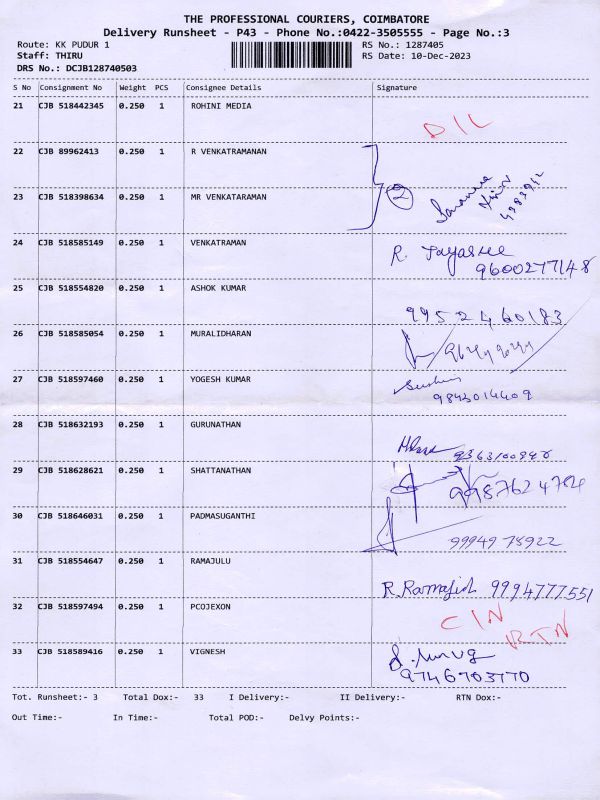 THE PROFESSIONAL COURIERS, COIMBATORE
Delivery Runsheet - P43 - Phone No.:0422-3505555 - Page No.:3
Route: KK PUDUR 1 RS No.: 1287405
Staff: THIRU RS Date: 10-Dec-2023
DRS No.: DCJB128740503
S No Consignment No Weight PCS Consignee Details Signature
21 CJB 518442345 0.250 1 ROHINI MEDIA
D/L
22 CJB 89962413 0.250 1 R VENKATRAMANAN
2
23 CJB 518398634 0.250 1 MR VENKATARAMAN
24 CJB 518585149 0.250 1 VENKATRAMAN
R. Jayasree
9600277148
25 CJB 518554820 0.250 1 ASHOK KUMAR
9952460183
26 CJB 518585054 0.250 1 MURALIDHARAN
27 CJB 518597460 0.250 1 YOGESH KUMAR
9843014409
28 CJB 518632193 0.250 1 GURUNATHAN
29 CJB 518628621 0.250 1 SHATTANATHAN
30 CJB 518646031 0.250 1 PADMASUGANTHI
99949 78922
31 CJB 518554647 0.250 1 RAMAJULU
9994777551
32 CJB 518597494 0.250 1 PCOJEXON
C/N
RTN
33 CJB 518589416 0.250 1 VIGNESH
9746703770
Tot. Runsheet:- 3 Total Dox:- 33 I Delivery:- II Delivery:- RTN Dox:-
Out Time:- In Time:- Total POD:- Delvy Points:-